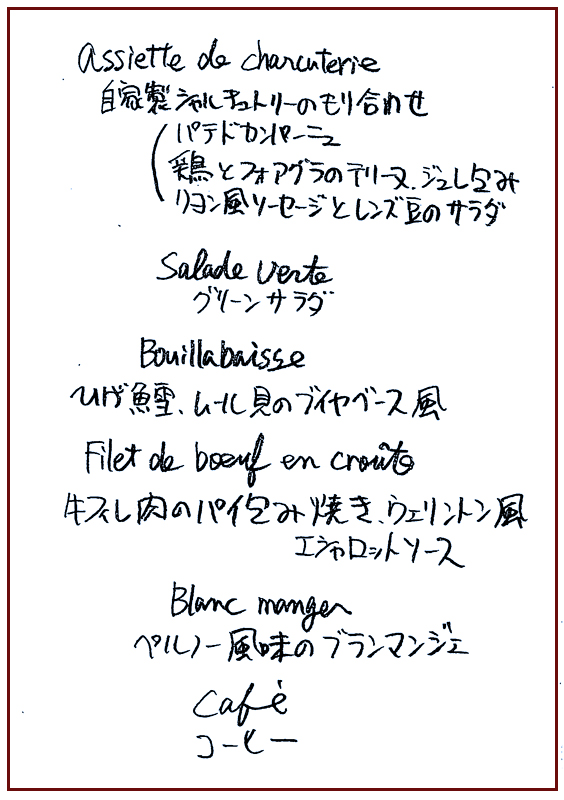 Assiette de charcuterie
自家製シャルキュトリーのもり合わせ
パテドカンパーニュ
鶏とフォアグラのテリーヌ、ジュレ包み
リヨン風ソーセージとレンズ豆のサラダ
Salade verte
グリーンサラダ
Bouillabaisse
ひげ鱈、ムール貝のブイヤベース風
Filet de boeuf en croûte
牛フィレ肉のパイ包み焼き、ウェリントン風
エシャロットソース
Blanc manger
ペルノー風味のブランマンジェ
Café
コーヒー